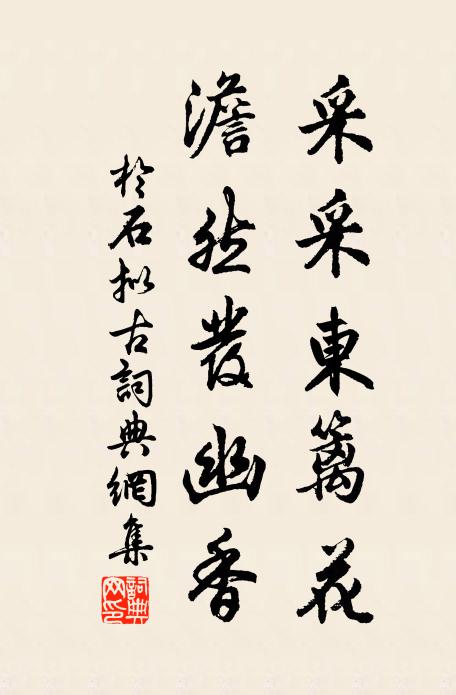 采采東籬花
澹然發幽香
於石拟古詞典網集
詞典網印